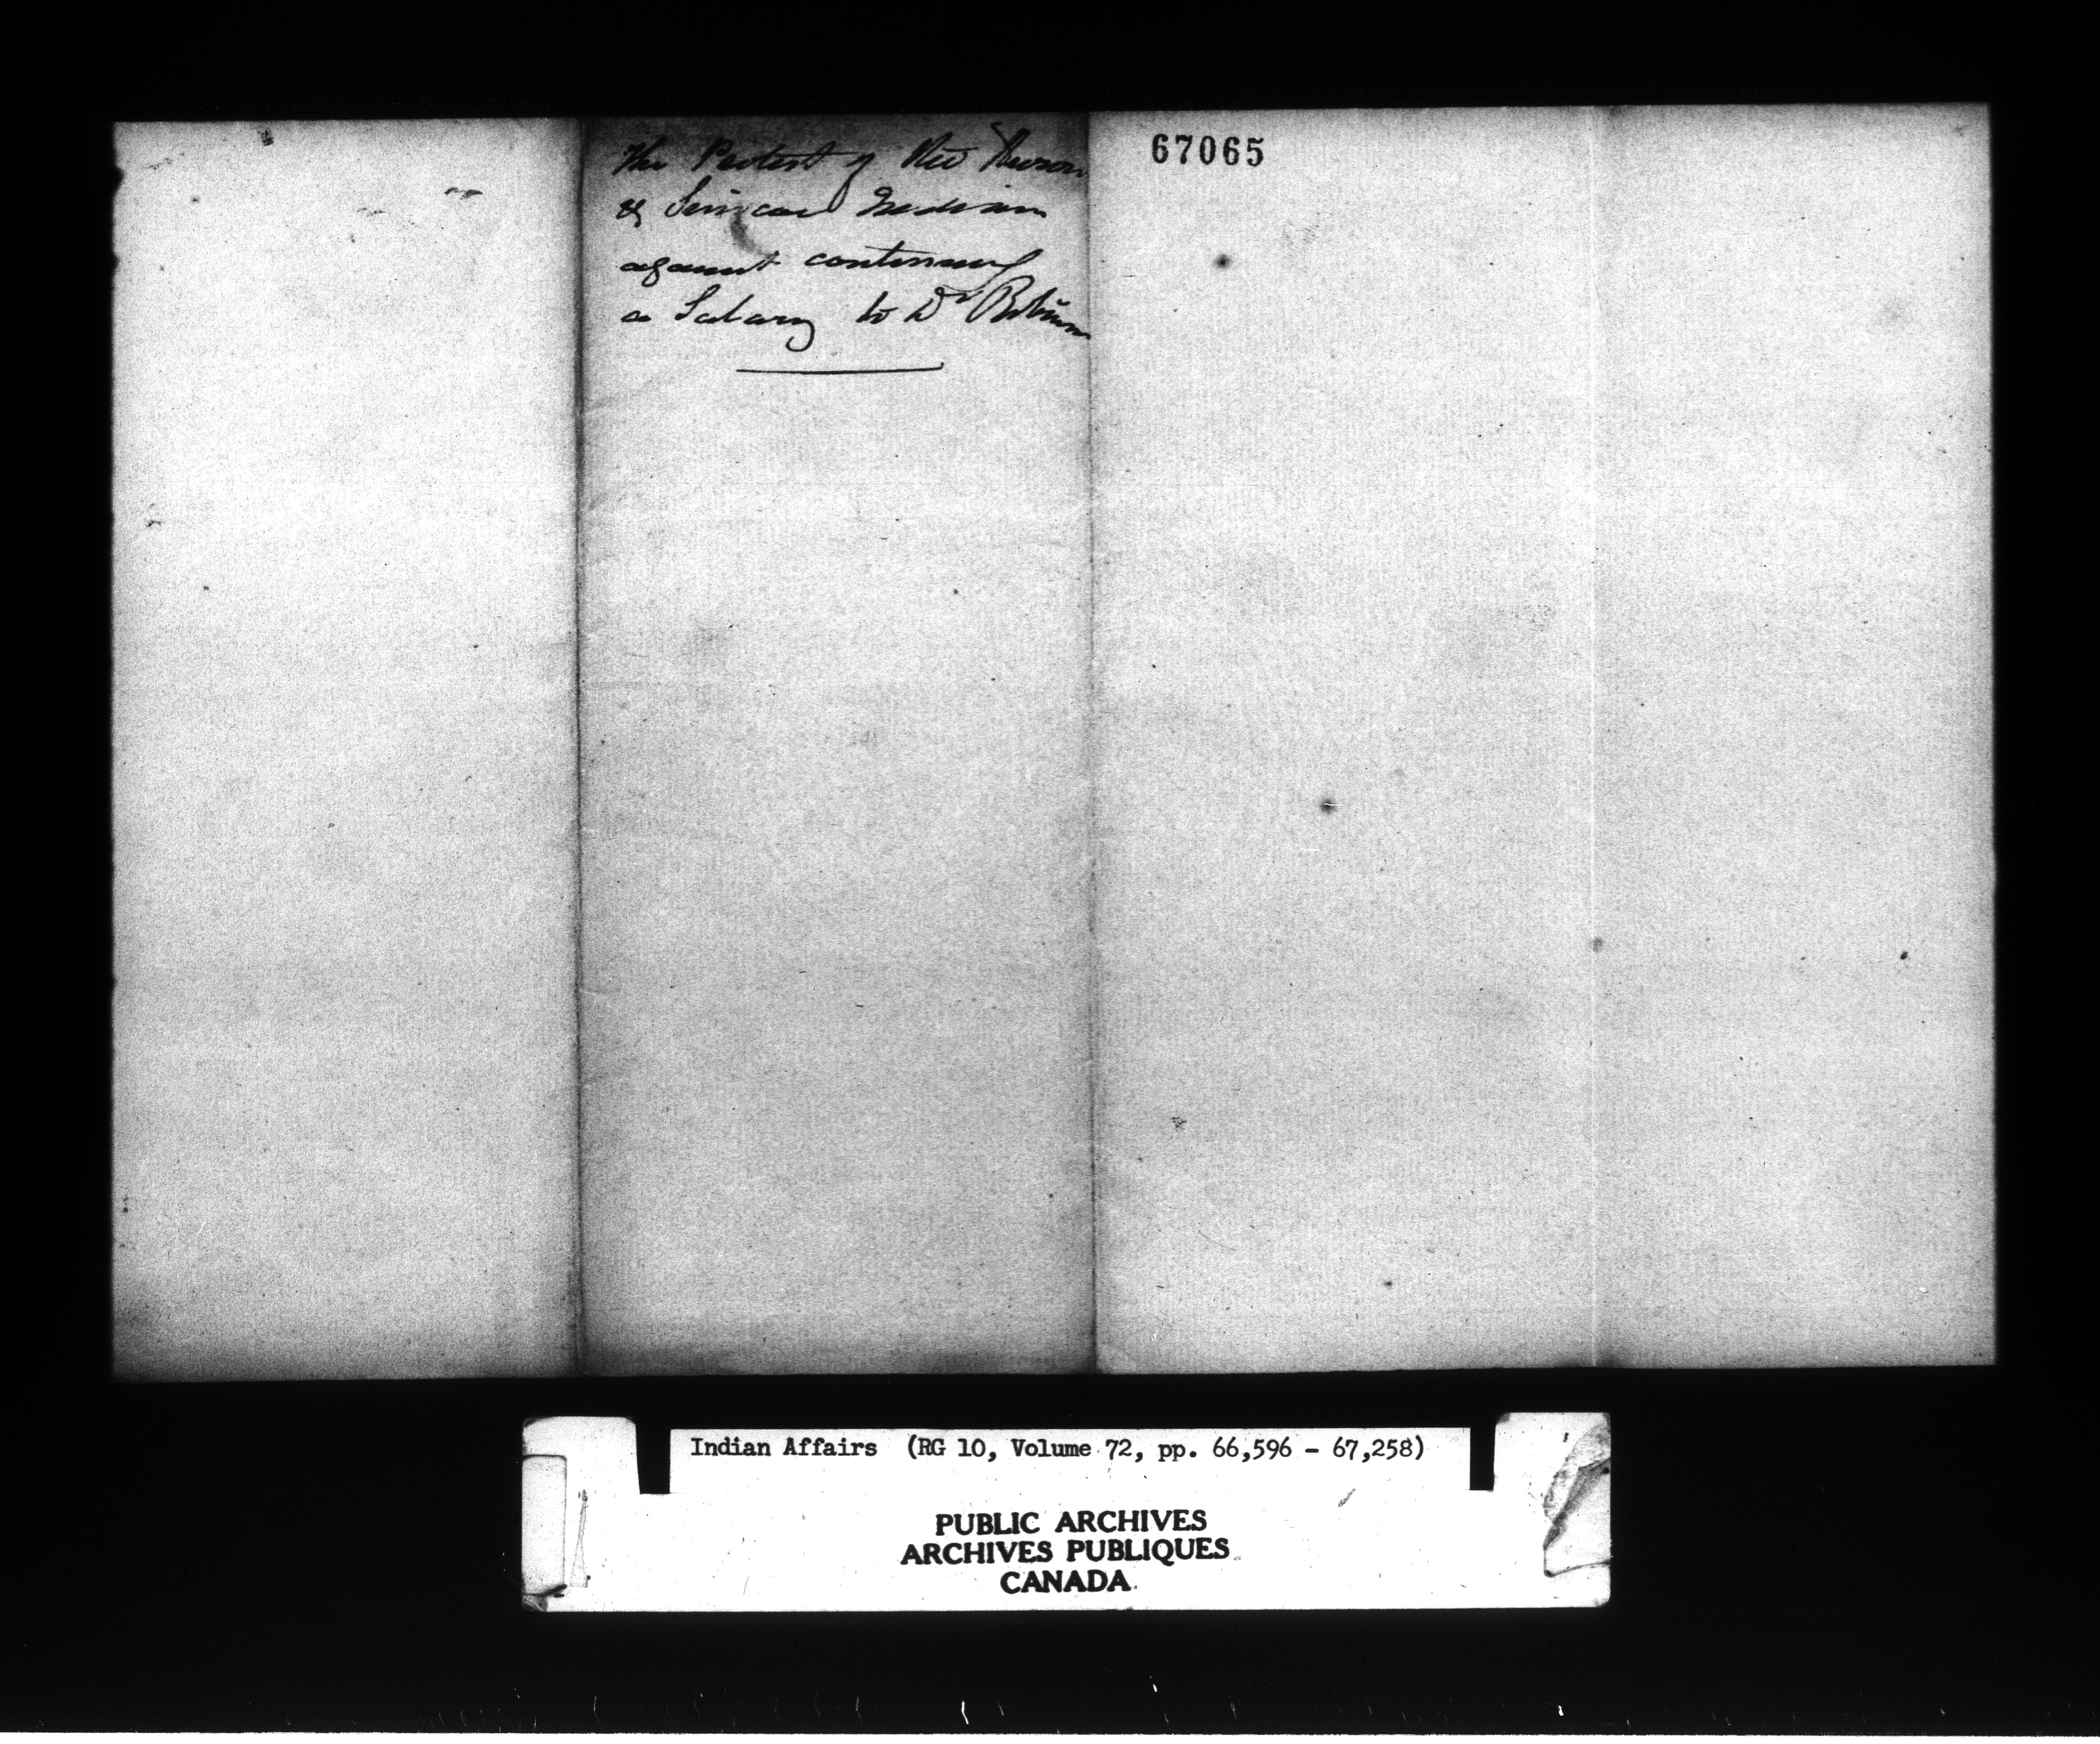 The Protest of the Huron
& Simcoe Indians
against continuing
a Salary to Dr Robinson
67065
Indian Affairs (RG 10, Volume 72, pp. 66,596 - 67,258)
PUBLIC ARCHIVES
ARCHIVES PUBLIQUES
CANADA